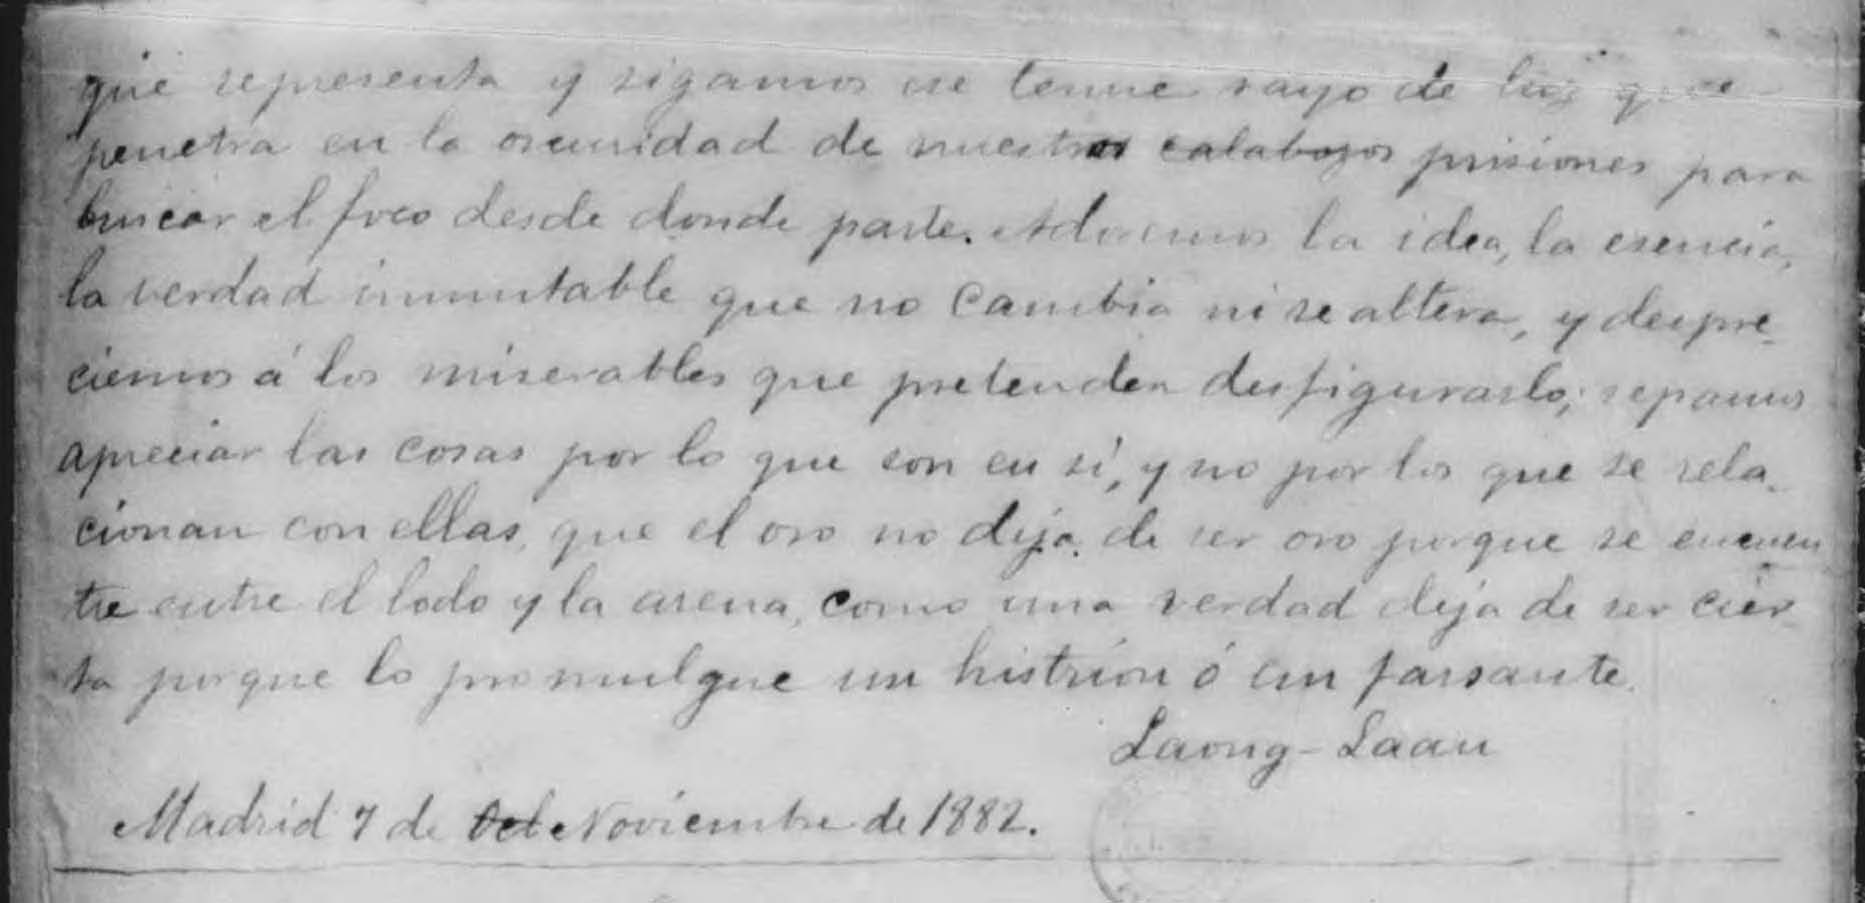 que representa y sigamos ese tenue rayo de luz que
penetra en la oscuridad de nuestras calabozos prisiones para
buscar el foco desde donde parte. Adoremos la idea, la esencia,
la verdad inmutable que no cambia ni se altera, y despre-
ciemos á los miserables que pretenden desfigurarlo; sepamos
apreciar las cosas por lo que son en sí, y no por los que se rela-
cionan con ellas, que el oro no deja de ser oro porque se encuen
tre entre el lodo y la arena, como una verdad deja de ser cier-
ta porque lo promulgue un histrion ó un farsante.
Laong-Laan
Madrid 7 de Oct Noviembre de 1882.